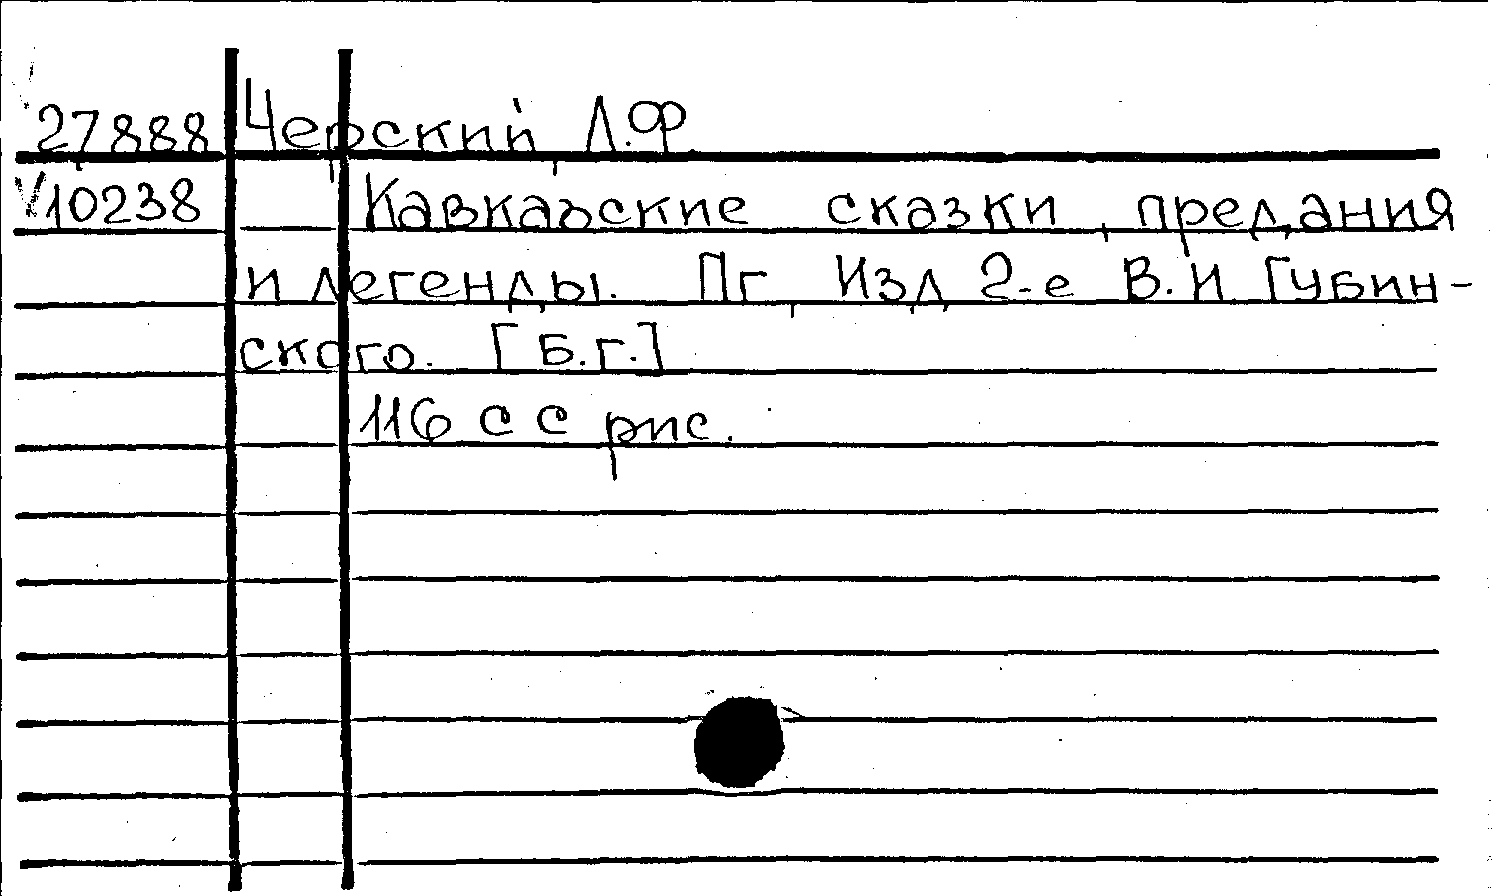 27888 Черский, Л.Ф.
V10238 Кавказские сказки, предания
и легенды. Пг, Изд. 2-е В.И Губин-
ского. [Б.г.]
116 с с рис.